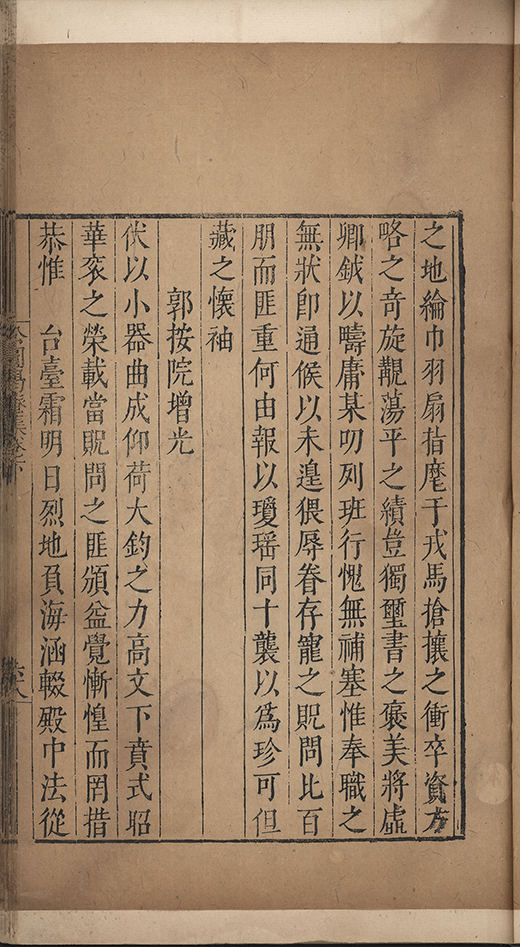 之地綸巾羽扇指麾于戎馬搶攘之衝卒資方
略之竒旋覩蕩平之績豈獨璽書之褒美將虛
卿鉞以疇庸某叨列班行愧無補塞惟奉職之
無狀卽通候以未遑猥辱眷存寵之貺問比百
朋而匪重何由報以瓊瑶同十襲以爲珍可但
藏之懷袖
郭按院增光
伏以小器曲成仰荷大鈞之力高文下賁式昭
華衮之榮載當貺問之匪頒益覺慚惶而罔措
恭惟　台臺霜明日烈地負海涵輟殿中法從